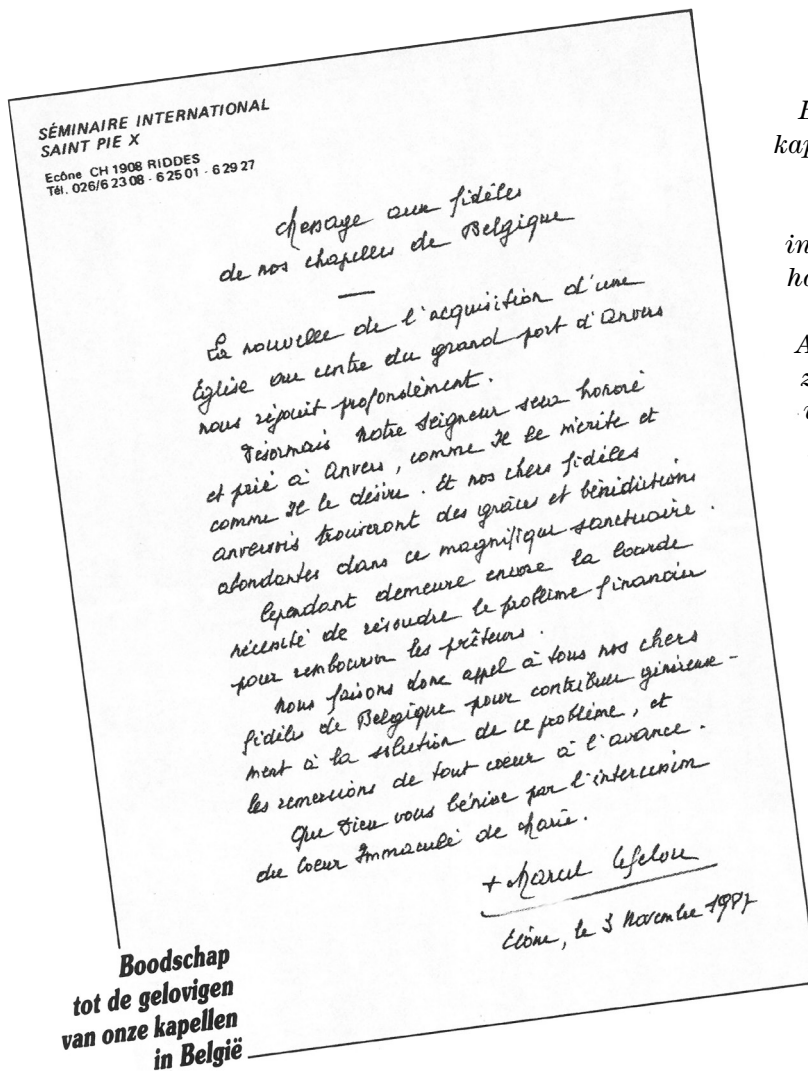 SÉMINAIRE INTERNATIONAL
SAINT PIE X
Ecône CH 1908 RIDDES
Tél. 026/6 23 08 - 6 25 01 - 6 29 27
Message aux fidèles
de nos chapelles de Belgique
La nouvelle de l'acquisition d'une
Eglise au centre du grand port d'Anvers
nous réjouit profondément.
Désormais Notre Seigneur sera honoré
et prié à Anvers, comme Il le mérite et
comme Il le désire. Et nos chers fidèles
anversois trouveront des grâces et bénédictions
abondantes dans ce magnifique sanctuaire.
Cependant demeure encore la lourde
nécessité de résoudre le problème financier
pour rembourser les prêteurs.
Nous faisons donc appel à tous nos chers
fidèles de Belgique pour contribuer généreuse-
ment à la solution de ce problème, et
les remercions de tout coeur à l'avance.
Que Dieu vous bénisse par l'intercession
du Coeur Immaculé de Marie.
+ Marcel Lefebvre
Ecône, le 3 Novembre 1987
Boodschap
tot de gelovigen
van onze kapellen
in België